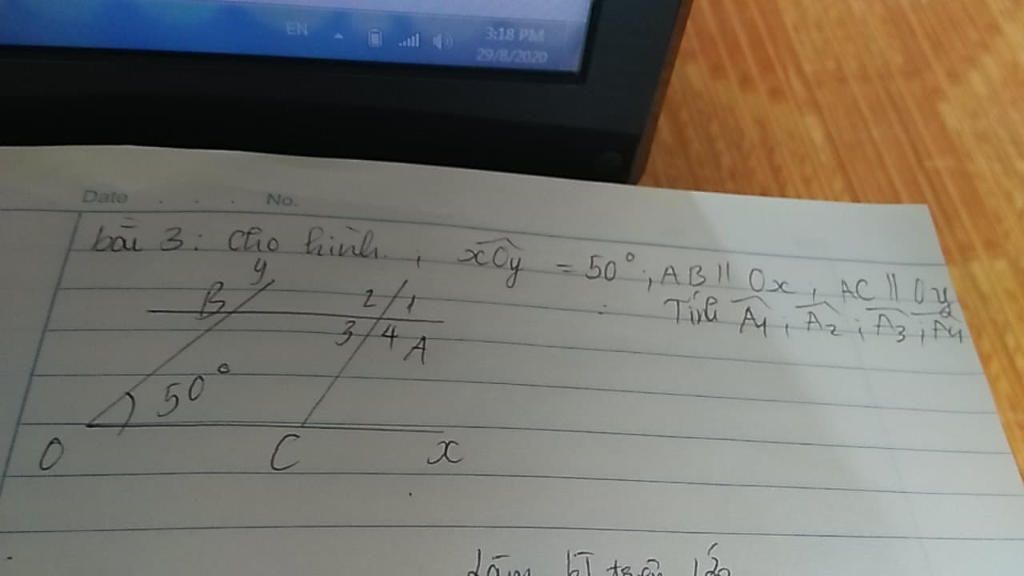 EN 3:18 PM
29/8/2020
Date No.
bài 3: Cho hình, xOy = 50°, AB || Ox, AC || Oy
Tính A1, A2; A3, A4
y
B 2 1
3 4 A
50°
O C x